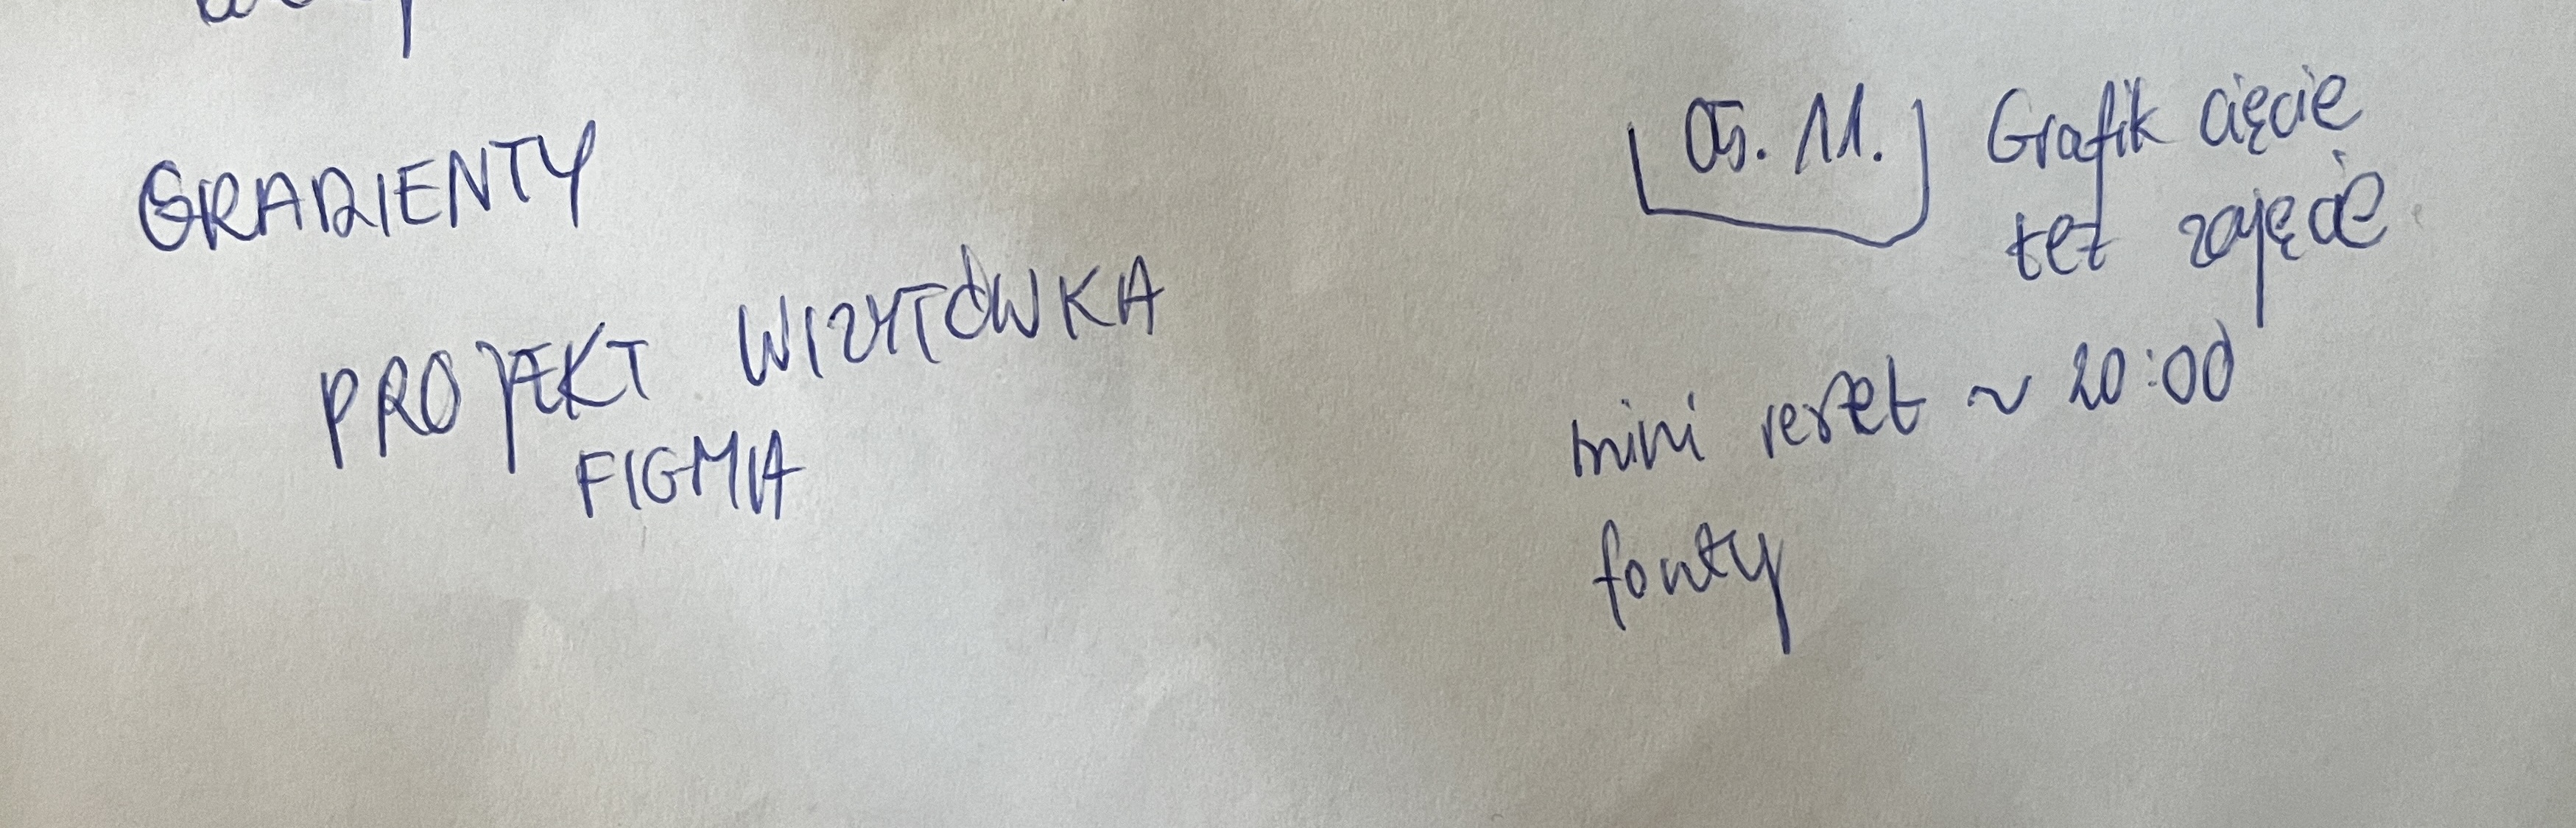 GRADIENTY
PROJEKT WIZYTÓWKA
FIGMA
05. 11. Grafik cięcie
też zajęcie
mini reszet ~ 20:00
fonty